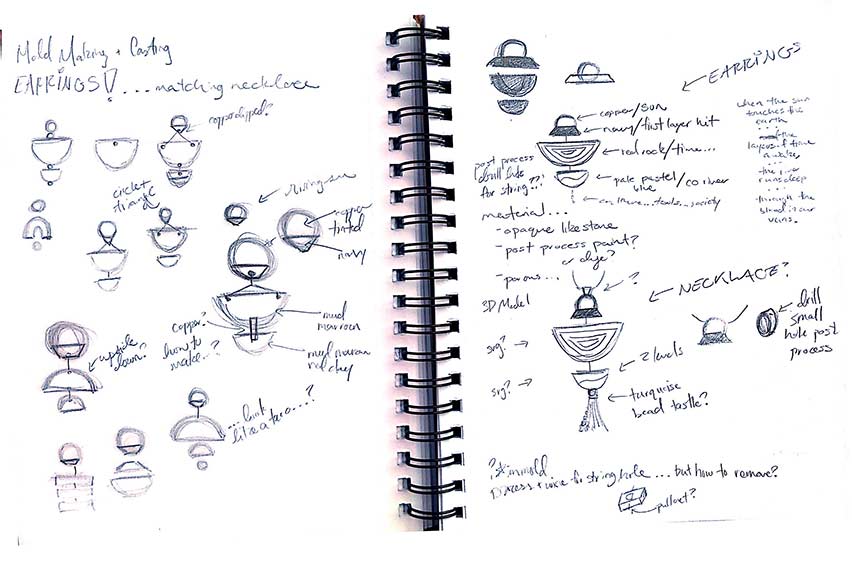 Mold Making + Casting
EARRINGS! ... matching necklace
copper dipped?
circlet
triangle
rising sun
copper
tinted
navy
mud
maroon
mud maroon
red clay
copper?
how to
make...?
upside
down?
... look
like a taco....?
EARRINGS
copper/sun
navy/first layer hit
red rock/time...
pale pastel
blue
/co river
... society
post process
drill hole
for string...?
when the sun
touches the
earth
...
layers of time
...
the river
runs deep
...
through the
blood in our
veins.
material...
- opaque like stone
- post process paint?
or dye?
- porous...
3D Model
?
NECKLACE?
drill
small
hole post
process
svg?
2 levels
svg?
turquoise
bead tastle?
process + wire for string hole ... but how to remove?
pullout?